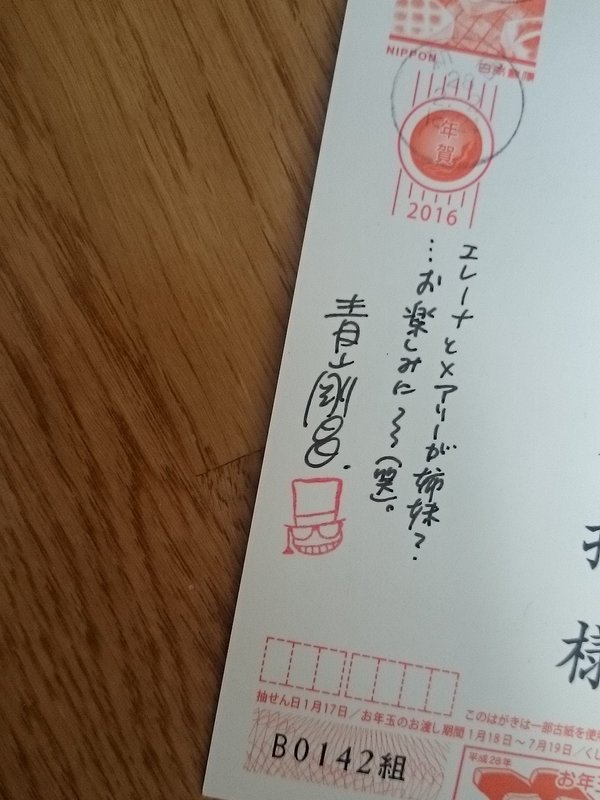 NIPPON 日本郵便
年賀
2016
エレーナとメアリーが姉妹?
…お楽しみに〜〜(笑)。
青山剛昌
様
このはがきは一部古紙を使
抽せん日1月17日／お年玉のお渡し期間 1月18日〜7月19日／く
B0142組
平成28年
お年